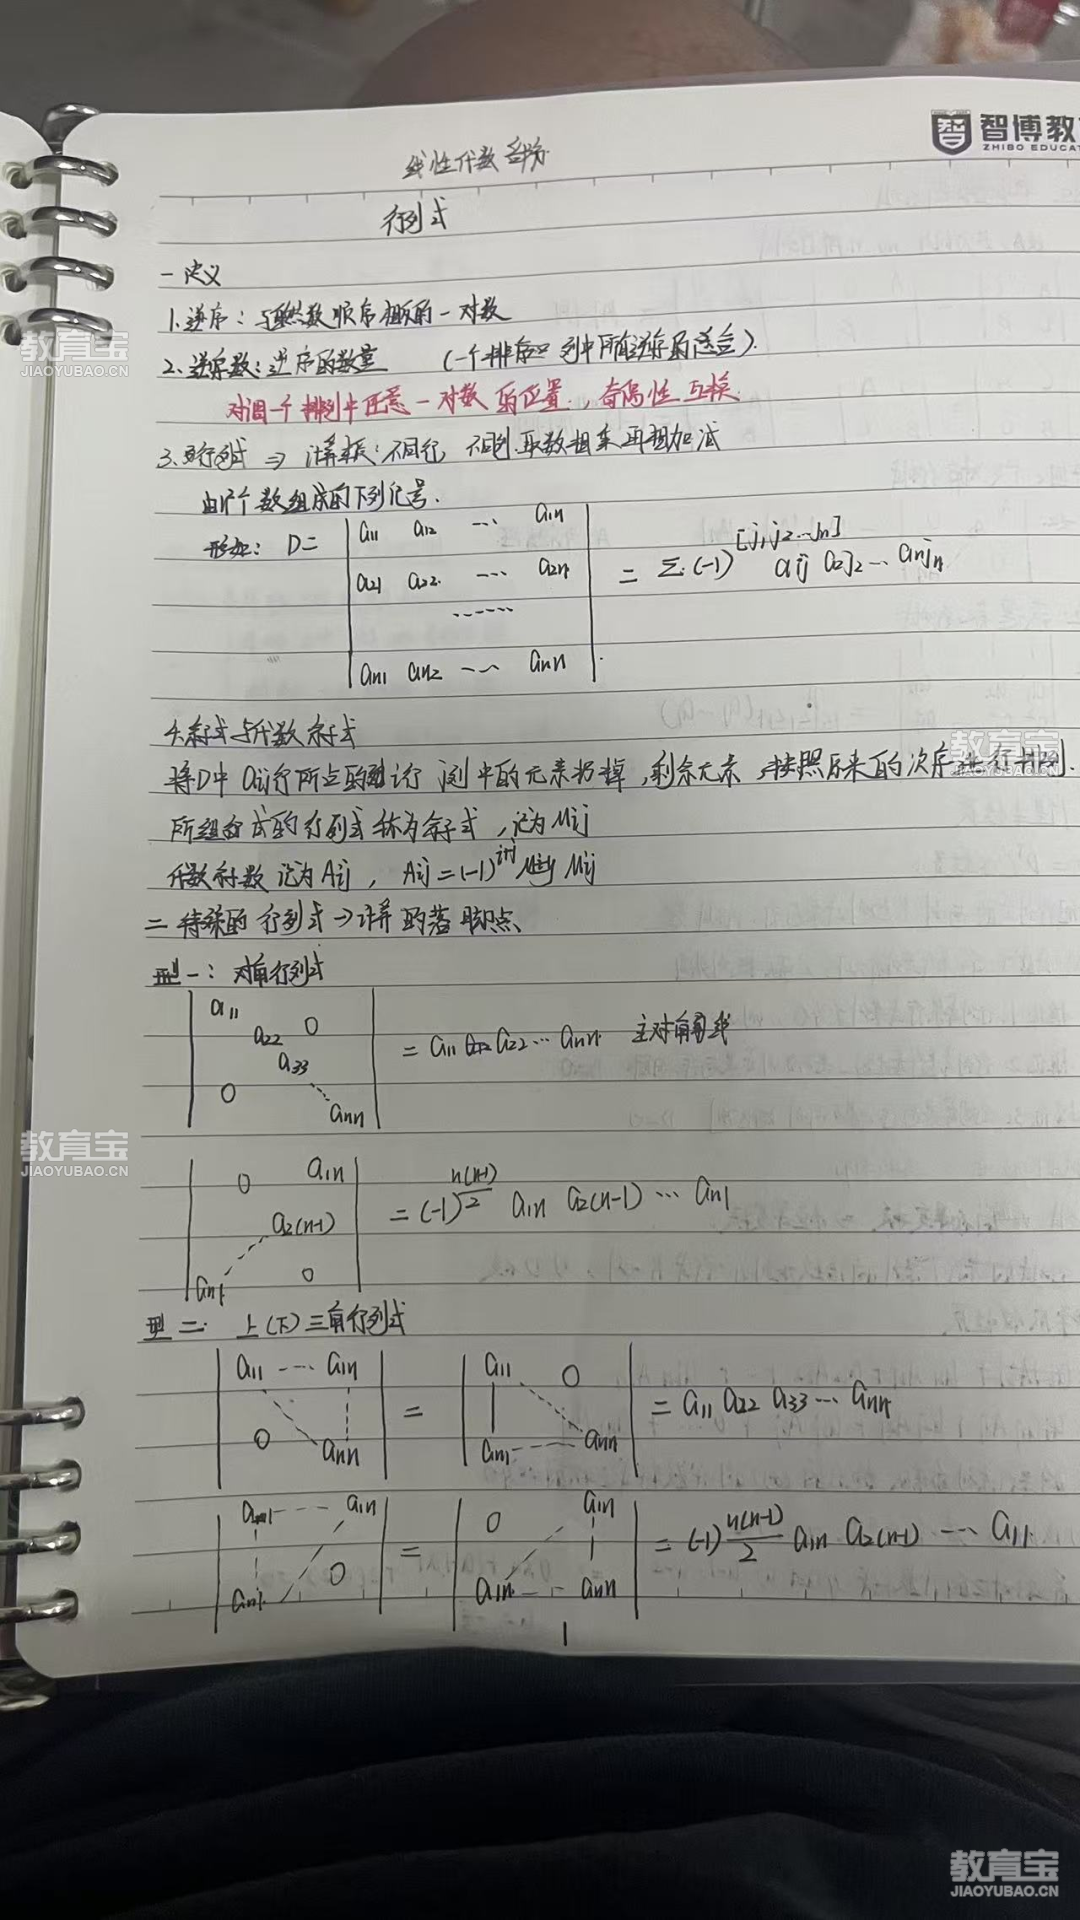 智博教
ZHIBO EDUCA
线性代数部分
行列式
一 定义
1.逆序：与自然数顺序相反的一对数
2.逆序数：逆序的数量 （一个排序列中所有逆序的总合）.
对调一个排列中任意一对数的位置，奇偶性互换.
3.行列式 ⇒ 计算式：不同行，不同列取数相乘再相加减
由n²个数组成的下列记号.
形如： D=
a11 a12 ... a1n
a21 a22 ... a2n
.......
an1 an2 ... ann
= Σ(-1)^[j1j2...jn] a1j a2j2 ... anjn
4.余子式与代数余子式
将D中aij所在的第i行 j列中的元素扔掉，剩余元素，按照原来的次序进行排列.
所组合成的行列式称为余子式，记为Mij
代数余数记为Aij，Aij=(-1)^i+j Mij
二 特殊的行列式→计算的落脚点
型一：对角行列式
a11
a22 0
a33
0
ann
= a11 a22 ... ann 主对角线
0 a1n
a2(n-1)
an1 0
= (-1)^n(n-1)/2 a1n a2(n-1) ... an1
型二. 上(下)三角行列式
a11 ... a1n
0 ann
=
a11 0
an1 ann
= a11 a22 a33 ... ann
a1n
an1 0
=
0 a1n
ann
= (-1)^n(n-1)/2 a1n a2(n-1) ... a11
1
教育宝
JIAOYUBAO.CN
教育宝
JIAOYUBAO.CN
教育宝
JIAOYUBAO.CN
教育宝
JIAOYUBAO.CN